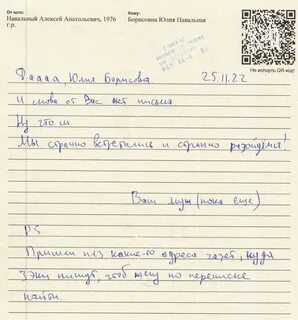 От кого:
Навальный Алексей Анатольевич, 1976
г.р.
Кому:
Борисовна Юлия Навальная
Не испорть QR-код!
Фаааа, Юлия Борисовна
25.11.22
И снова от Вас нет письма
Ну что ж
Мы странно встретились и странно разойдемся!
Ваш муж (пока еще)
P.S.
Пришли из адреса газет, куда
Зэки пишут, чтоб по переписке
найти.